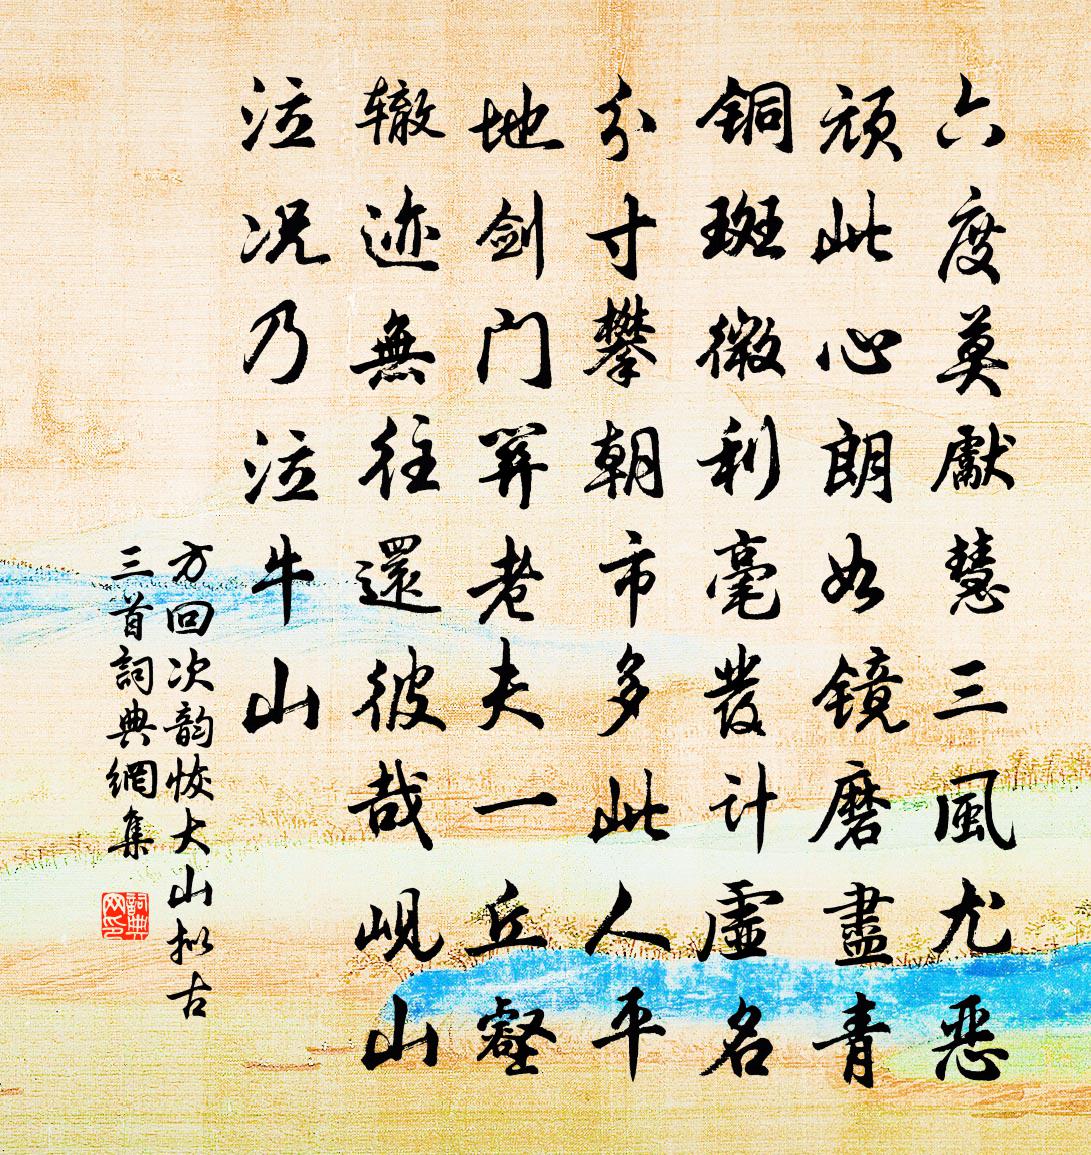 六度莫獻慧三風尤惡
頑此心朗如镜磨盡青
銅斑微利毫發计虛名
分寸攀朝市多此人平
地剑门開老夫一丘壑
辙迹無往還彼哉岘山
泣况乃泣牛山
方回次韵恢大山拟古
三首詞典網集
詞典
网印